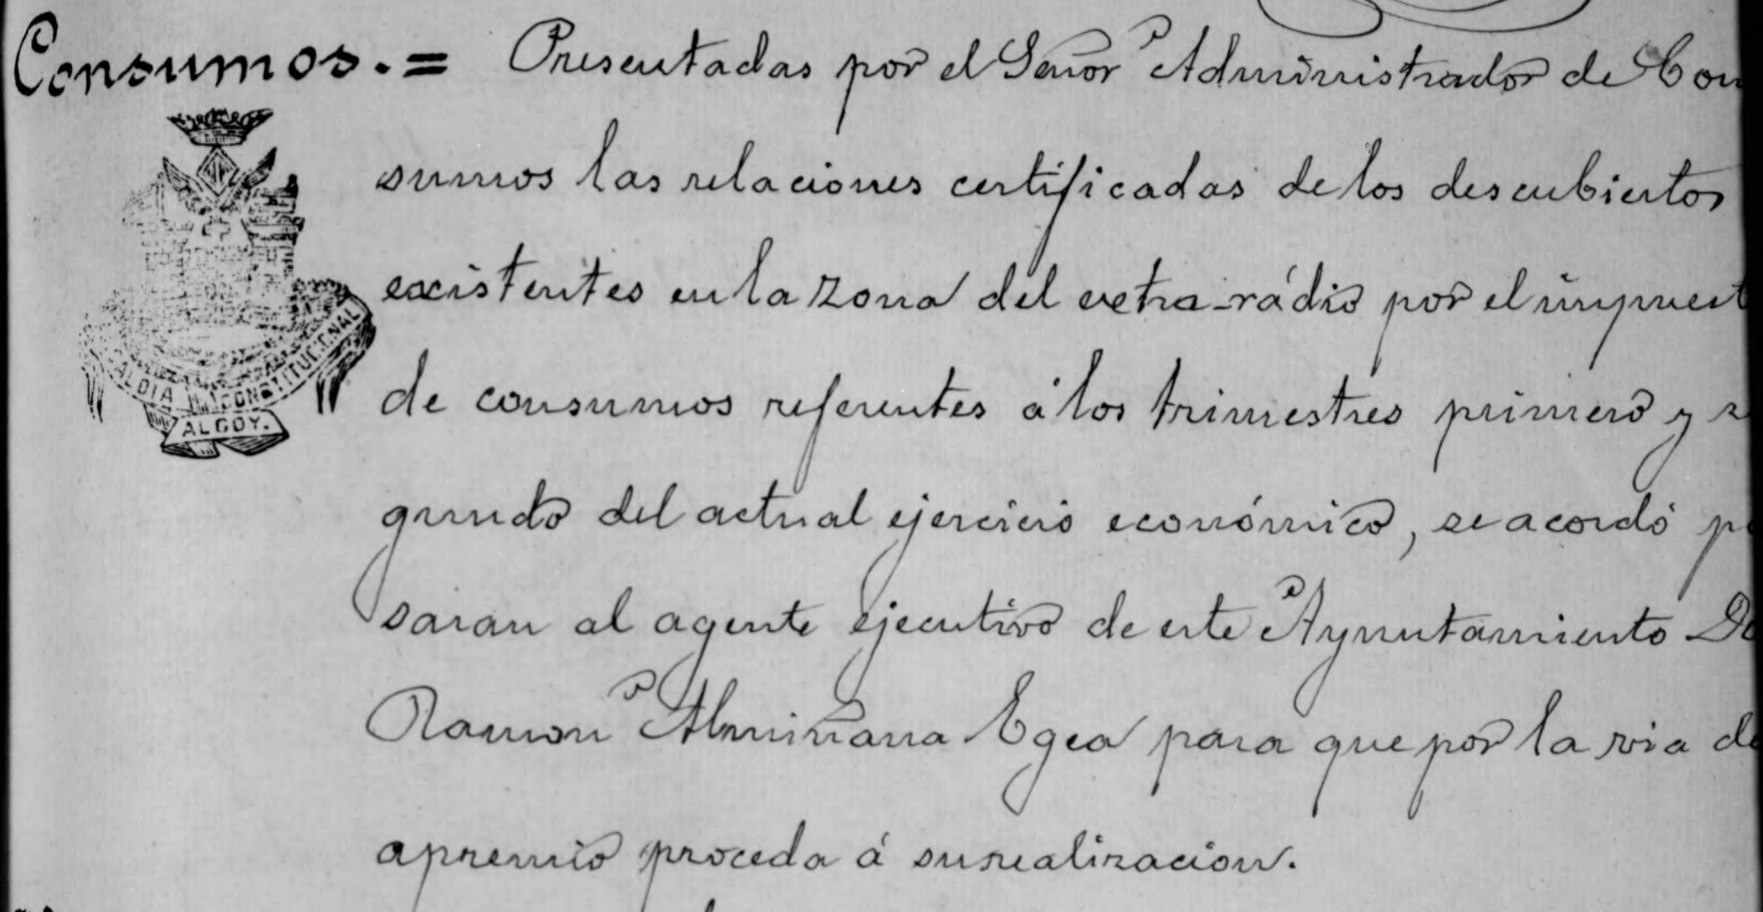 Consumos.= Presentadas por el Señor Administrador de Con
sumos las relaciones certificadas de los descubiertos
existentes en la zona del extra-rádio por el impuest
de consumos referentes á los trimestres primero y s
gundo del actual ejercicio económico, se acordó p
saran al agente ejecutivo de este Ayuntamiento D
Ramon Almiñana Egea para que por la via de
apremio proceda á su realizacion.
ALDIA CONSTITUCIONAL
ALCOY.